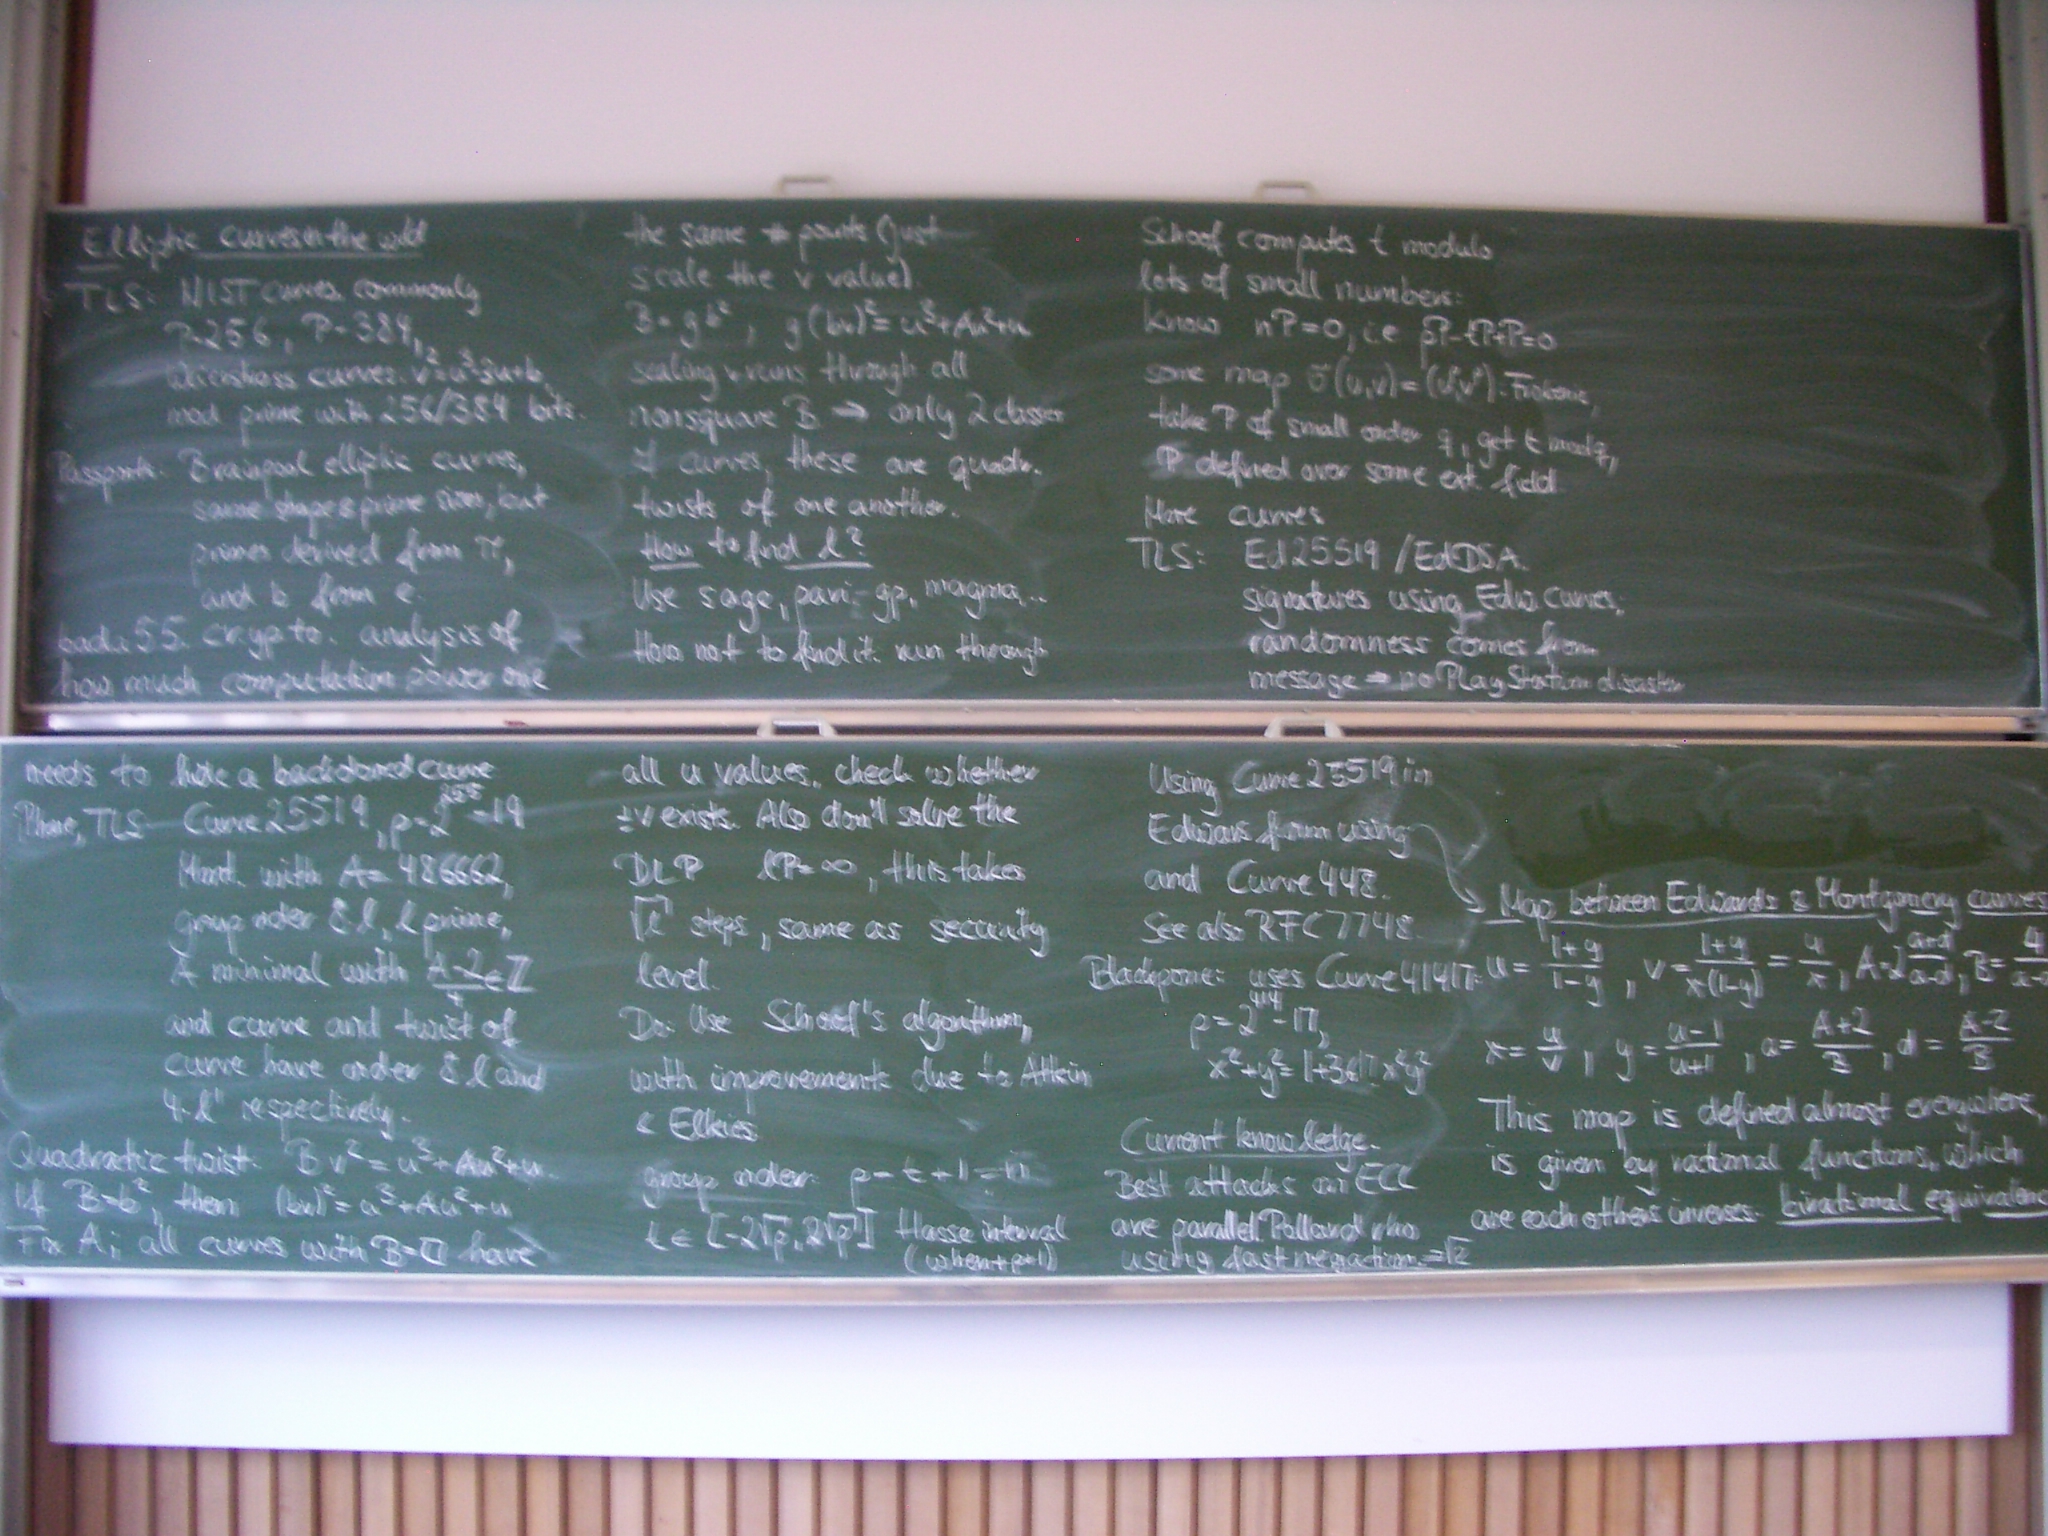 Elliptic curves in the wild
TLS: NIST curves commonly
P-256, P-384,
Weierstrass curves: v²=u³-3u+b,
mod prime with 256/384 bits.
Passports: Brainpool elliptic curves,
same shape & prime sizes, but
primes derived from π,
and b from e.
bada55.cr.yp.to: analysis of
how much computation power one
needs to hide a backdoored curve
Phone, TLS: Curve25519, p=2²⁵⁵-19
Mont. with A=486662,
group order 8·l, l prime,
A minimal with (A-2)/4 ∈ Z
and curve and twist of
curve have order 8·l and
4·l' respectively.
Quadratic twist: Bv²=u³+Au²+u.
If B=b², then (bv)²=u³+Au²+u
Fix A; all curves with B=□ have
the same # points (just
scale the v value).
B=gb², g(bv)²=u³+Au²+u
scaling v runs through all
nonsquare B → only 2 classes
of curves, these are quadr.
twists of one another.
How to find l?
Use sage, pari-gp, magma,..
How not to find it: run through
all u values, check whether
±v exists. Also don't solve the
DLP lP=∞, this takes
√l steps, same as security
level.
Do: Use Schoof's algorithm,
with improvements due to Atkin
& Elkies
group order: p-t+1=n
t∈[-2√p, 2√p] Hasse interval
Schoof computes t modulo
lots of small numbers:
know nP=0, i.e. pP-tP+P=0
some map σ(u,v)=(uᵖ,vᵖ):
take P of small order q, get t mod q,
P defined over some ext. field
More curves
TLS: Ed25519/EdDSA.
signatures using Edw. curves,
randomness comes from
message → no PlayStation disaster
Using Curve25519 in
Edwars form using
and Curve448.
See also RFC7748.
Blackpone: uses Curve41417:
p=2⁴¹⁴-17,
x²+y²=1+3617x²y²
Current knowledge.
Best attacks on ECC
are parallel Pollard rho
using fast negation →√2
Map between Edwards & Montgomery curves
u=(1+y)/(1-y), v=(1+y)/(x(1-y))=u/x, A=2(a+d)/(a-d), B=4/(a-d
x=u/v, y=(u-1)/(u+1), a=(A+2)/B, d=(A-2)/B
This map is defined almost everywhere,
is given by rational functions, which
are each others inverses: birational equivalence